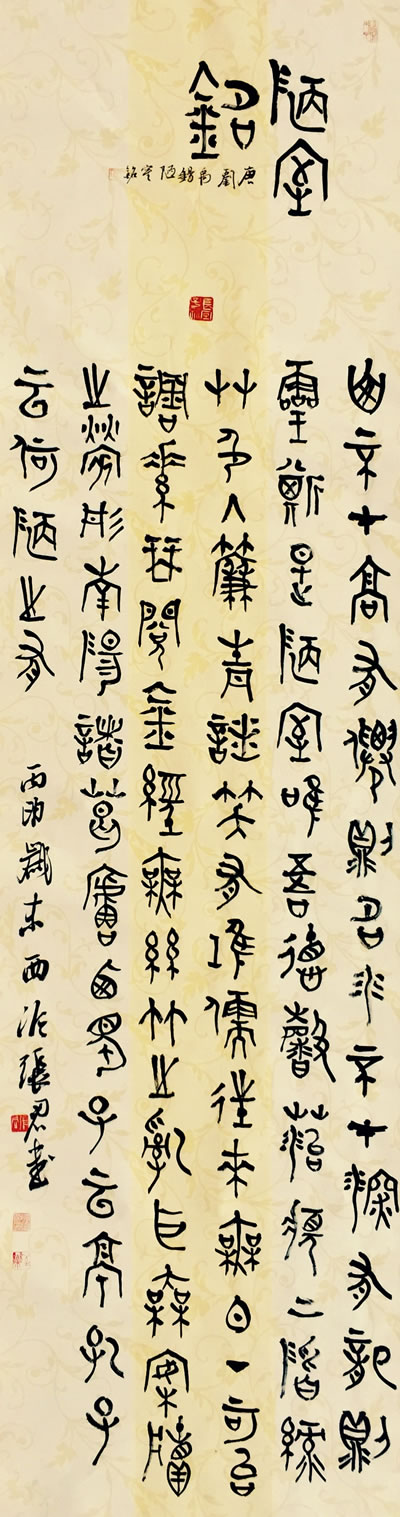 陋室
銘
唐劉禹錫陋室銘
山不在高有僊則名水不在深有龍則
靈斯是陋室唯吾德馨苔痕上階綠
艸色入簾青談笑有鴻儒往來無白丁可以
調素琴閱金經無絲竹之亂耳無案牘
之勞形南陽諸葛廬西蜀子云亭孔子
云何陋之有
丙申歲末西泠張君書